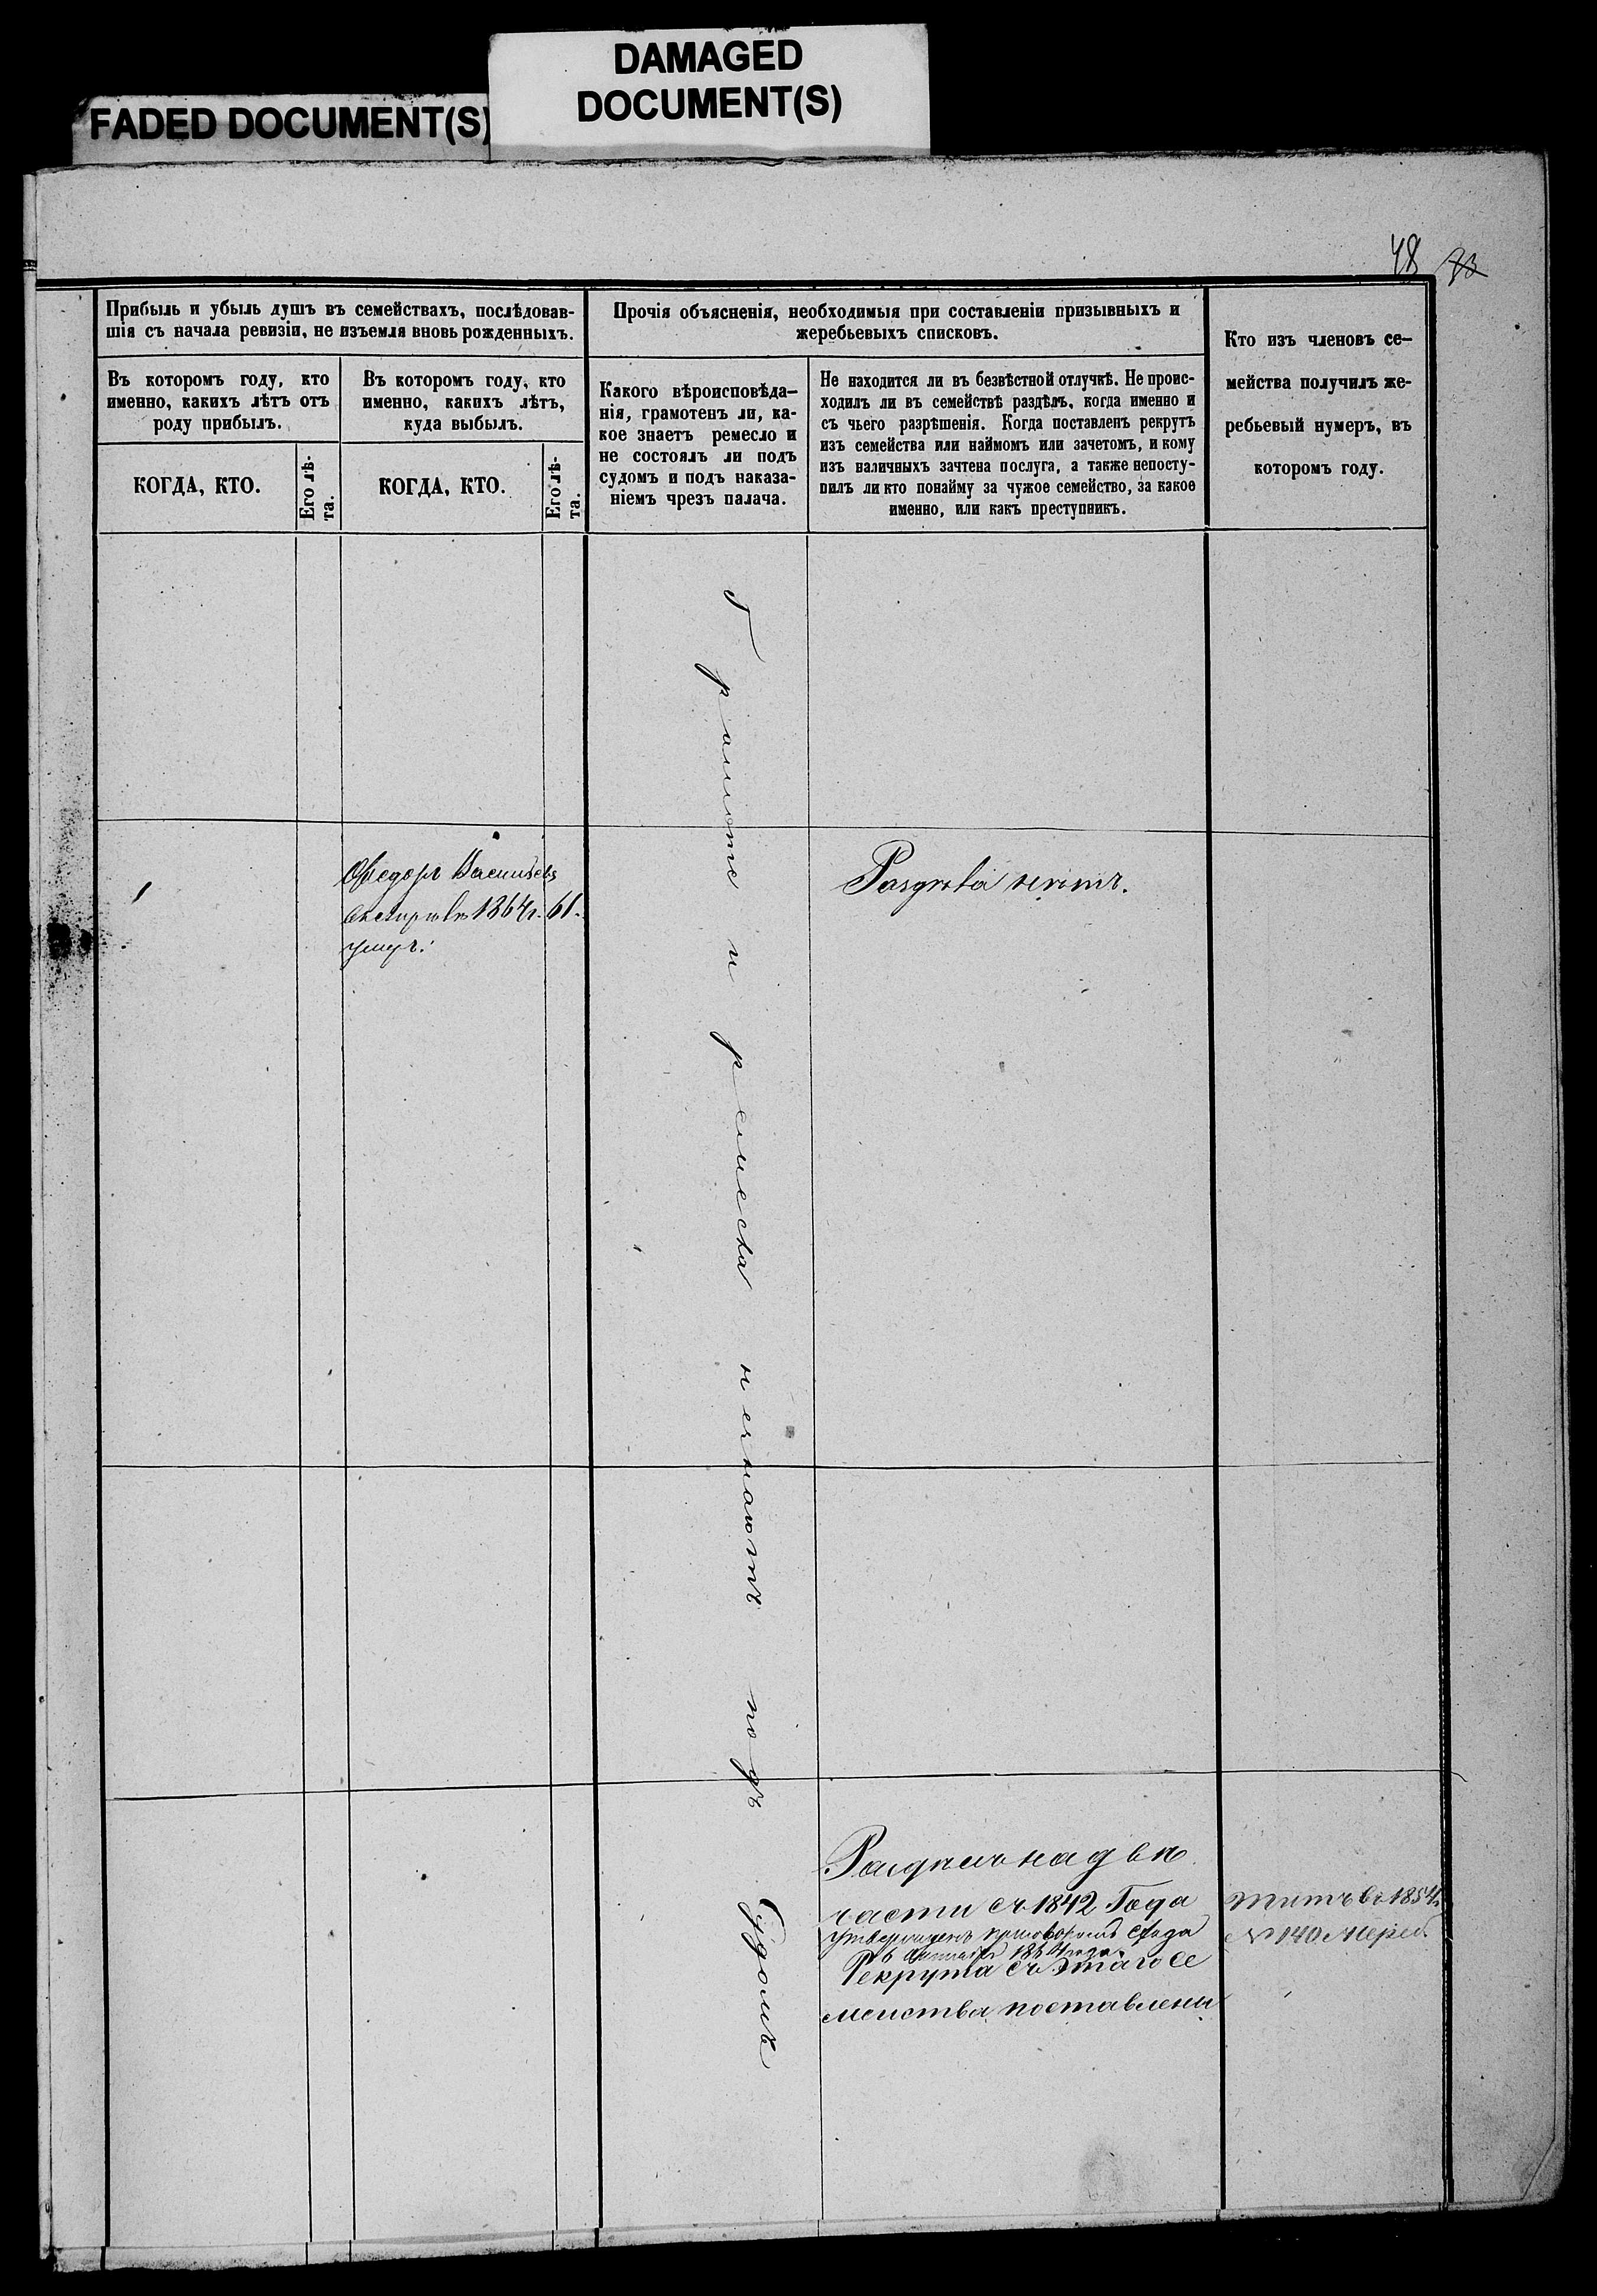 FADED DOCUMENT(S)
DAMAGED
DOCUMENT(S)
48
Прибыль и убыль душъ въ семействахъ, послѣдовав-
шія съ начала ревизіи, не изъемля вновь рожденныхъ.
Прочія объясненія, необходимыя при составленіи призывныхъ и
жеребьевыхъ списковъ.
Кто изъ членовъ се-
мейства получилъ же-
ребьевый нумеръ, въ
которомъ году.
Въ которомъ году, кто
именно, какихъ лѣтъ отъ
роду прибылъ.
Въ которомъ году, кто
именно, какихъ лѣтъ,
куда выбылъ.
Какого вѣроисповѣда-
нія, грамотенъ ли, ка-
кое знаетъ ремесло и
не состоялъ ли подъ
судомъ и подъ наказа-
ніемъ чрезъ палача.
Не находится ли въ безвѣстной отлучкѣ. Не проис-
ходилъ ли въ семействѣ раздѣлъ, когда именно и
съ чьего разрѣшенія. Когда поставленъ рекрутъ
изъ семейства или наймомъ или зачетомъ, и кому
изъ наличныхъ зачтена послуга, а также непосту-
пилъ ли кто понайму за чужое семейство, за какое
именно, или какъ преступникъ.
КОГДА, КТО.
Его лѣ-
та.
КОГДА, КТО.
Его лѣ-
та.
Грамоте и ремесла незнаютъ подъ Судомъ
Федоръ Васильевъ
1864г. 61.
умеръ.
Раздѣлъ на двѣ
части съ 1842 Года
утвержденъ приговоромъ схода
1854 года.
Рекрута съ этаго се
мейства поставлены
Титъ въ 1854г.
№ 140 жереб.